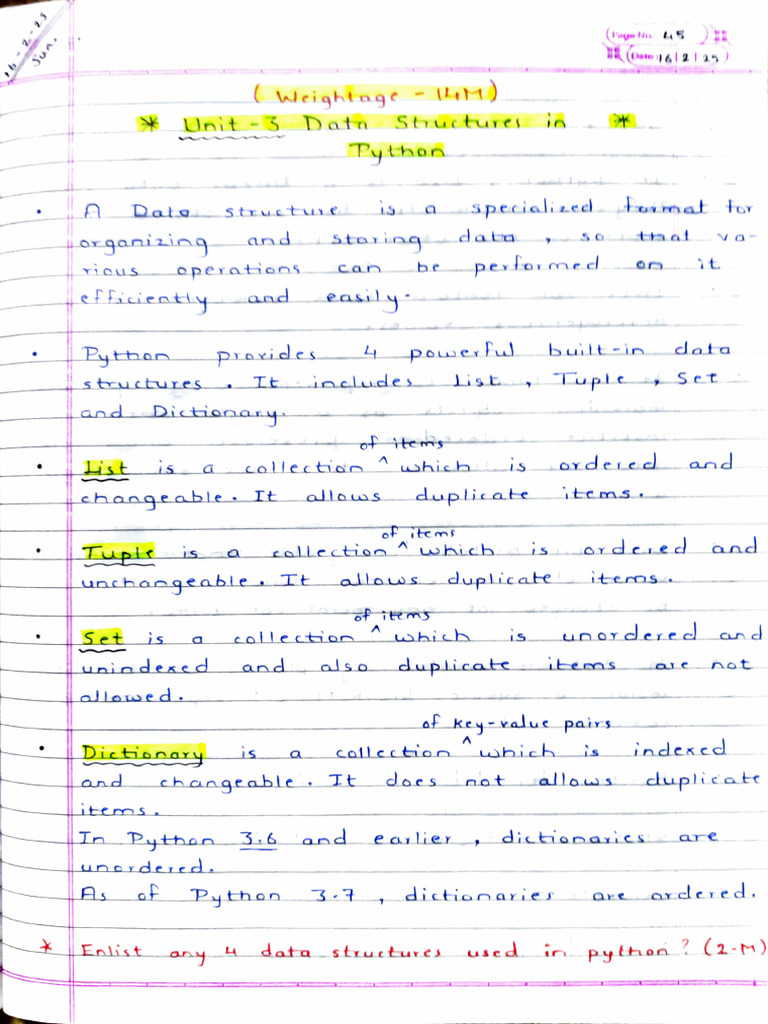 16-2-25
Sun.
Page No. 45
Date: 16/2/25
(Weightage - 14M)
* Unit-3 Data Structures in *
Python
• A Data structure is a specialized format for
organizing and storing data, so that va-
rious operations can be performed on it
efficiently and easily.
• Python provides 4 powerful built-in data
structures. It includes List, Tuple, Set
and Dictionary.
of items
• List is a collection ^ which is ordered and
changeable. It allows duplicate items.
of items
• Tuple is a collection ^ which is ordered and
unchangeable. It allows duplicate items.
of items
• Set is a collection ^ which is unordered and
unindexed and also duplicate items are not
allowed.
of key-value pairs
• Dictionary is a collection ^ which is indexed
and changeable. It does not allows duplicate
items.
In Python 3.6 and earlier, dictionaries are
unordered.
As of Python 3.7, dictionaries are ordered.
* Enlist any 4 data structures used in python? (2-M)